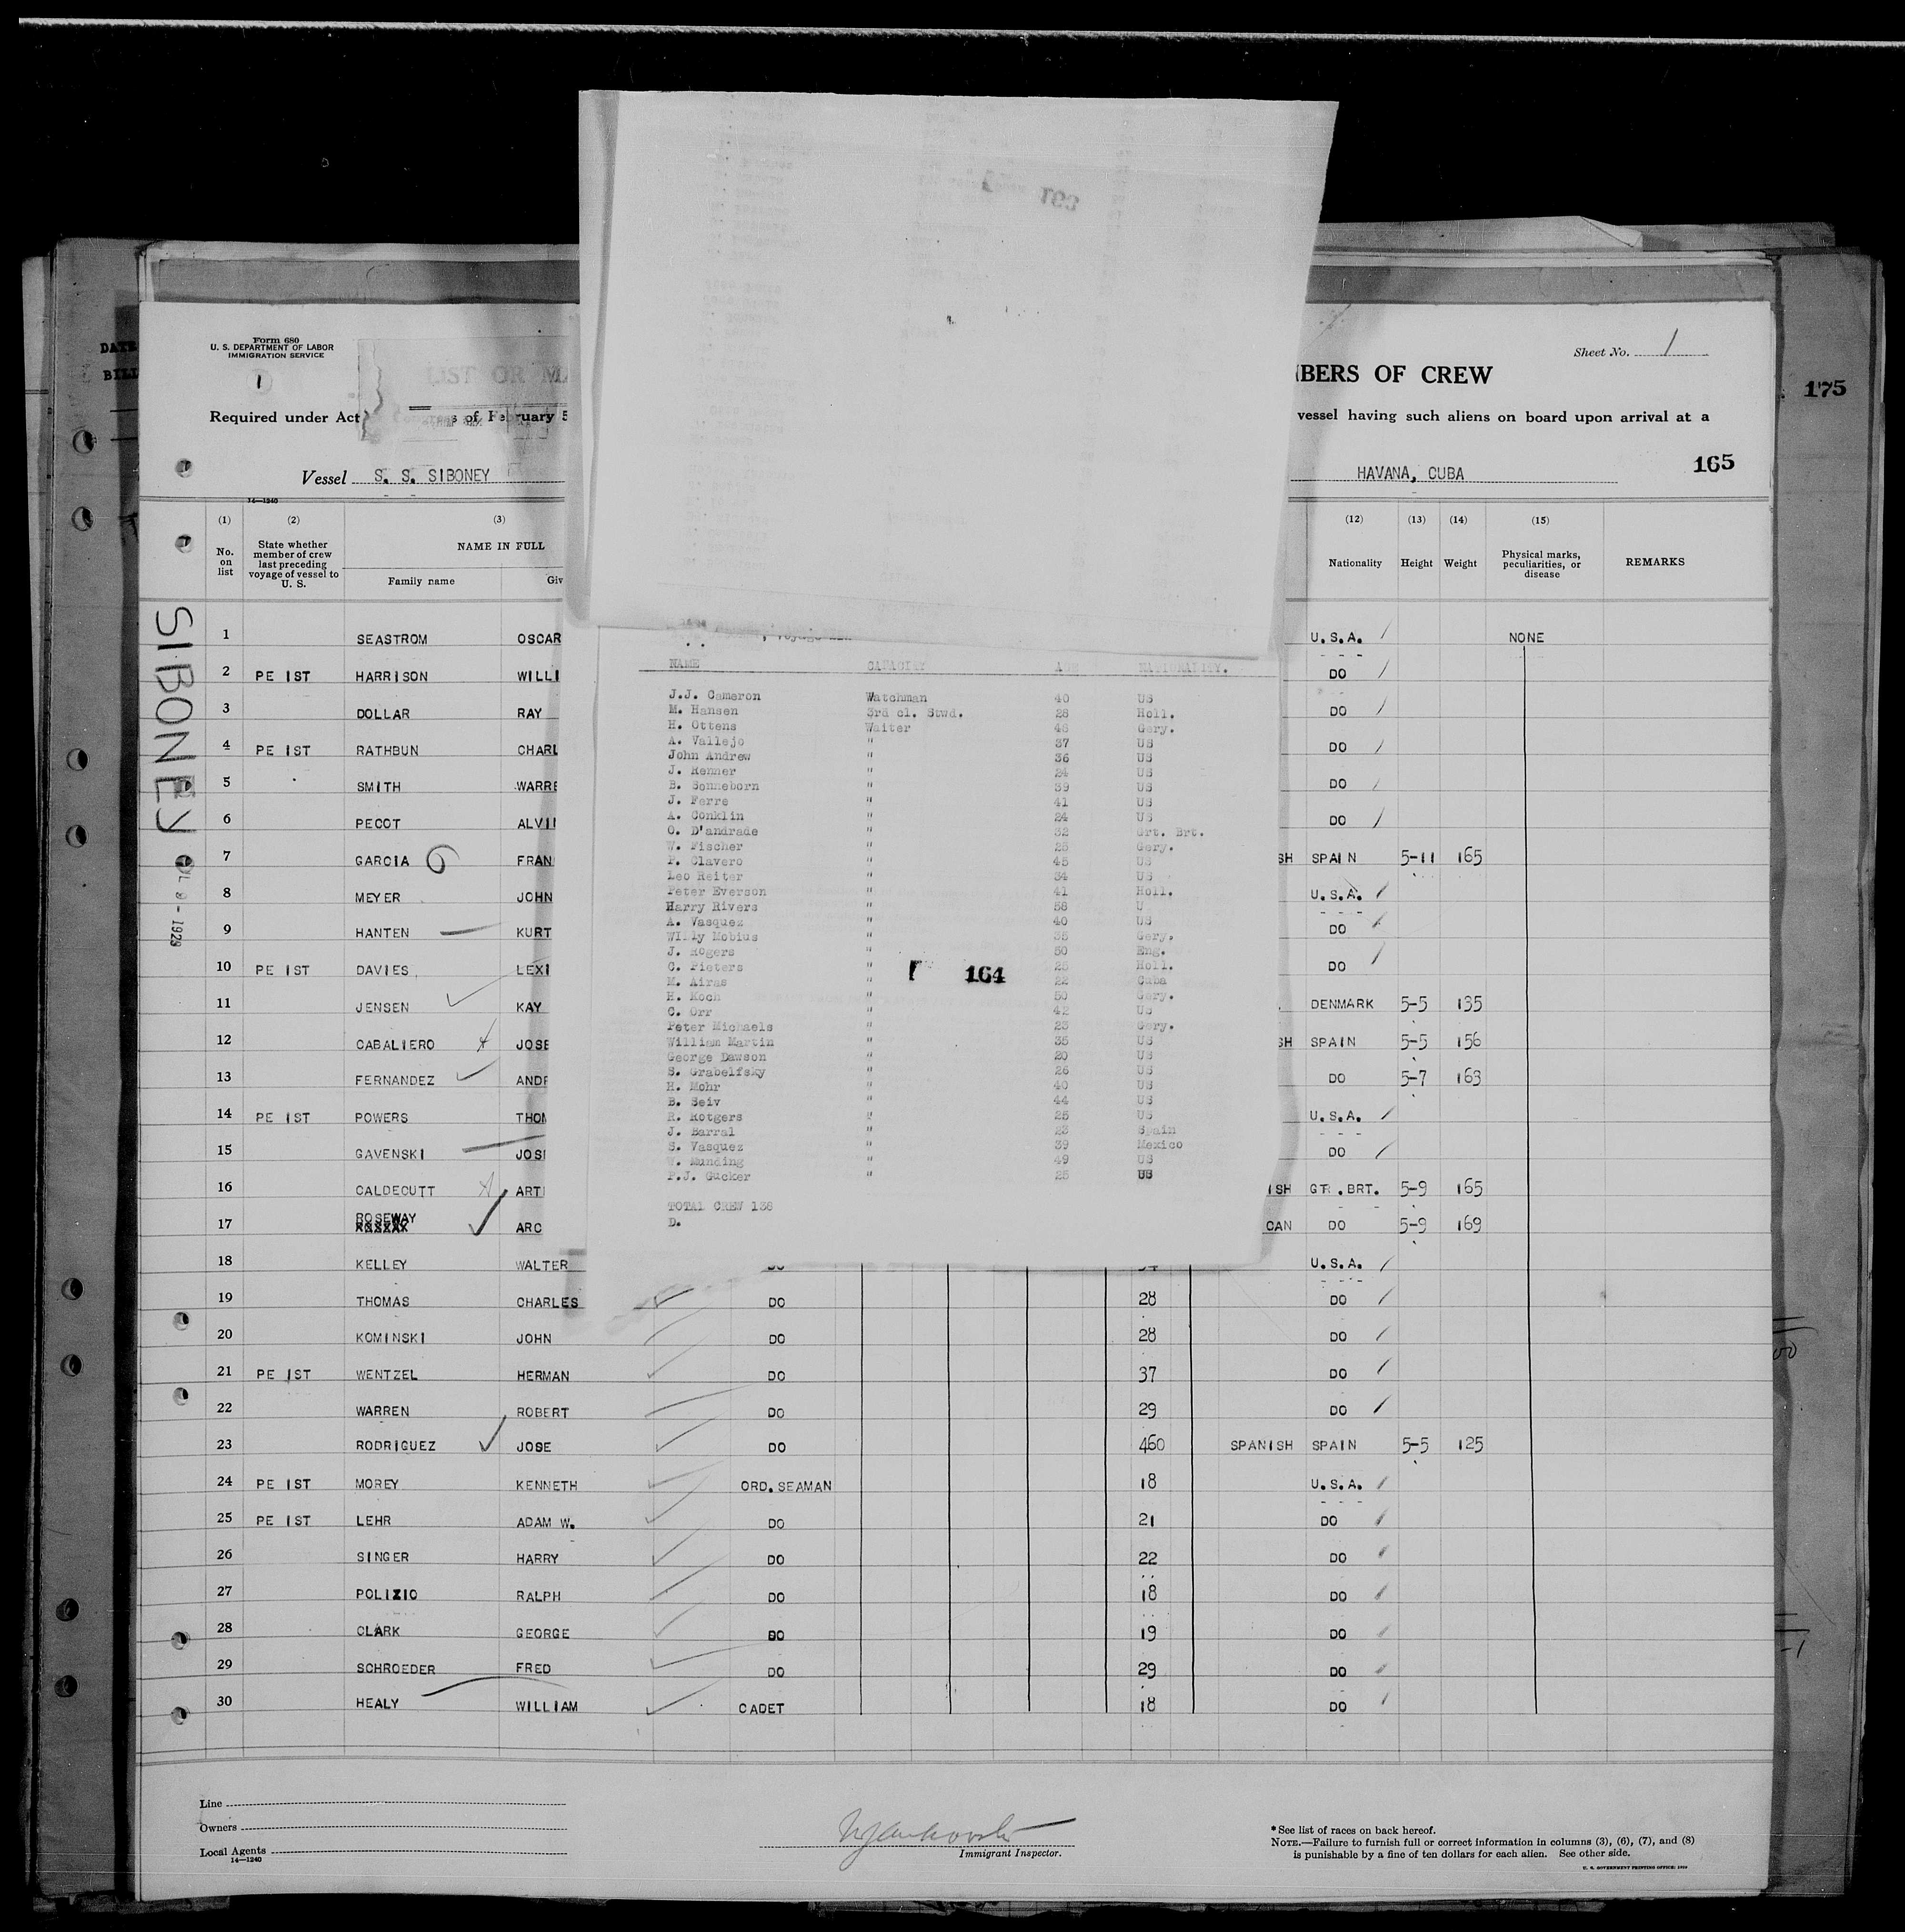 Form 680
U. S. DEPARTMENT OF LABOR
IMMIGRATION SERVICE
1
Sheet No. 1
LIST OR MA
MBERS OF CREW
175
Required under Act
s of February 5
vessel having such aliens on board upon arrival at a
165
Vessel S. S. SIBONEY
HAVANA, CUBA
14—1240
(1) (2) (3) (12) (13) (14) (15)
No. on list
State whether member of crew last preceding voyage of vessel to U. S.
NAME IN FULL
Family name
Giv
Nationality Height Weight
Physical marks, peculiarities, or disease
REMARKS
SIBONEY
9 - 1929
1 SEASTROM OSCAR U.S.A. NONE
2 PE IST HARRISON WILLI DO
3 DOLLAR RAY DO
4 PE IST RATHBUN CHARL DO
5 SMITH WARRE DO
6 PECOT ALVI DO
7 GARCIA 6 FRAN SH SPAIN 5-11 165
8 MEYER JOHN U.S.A.
9 HANTEN KURT DO
10 PE IST DAVIES LEXI DO
11 JENSEN KAY DENMARK 5-5 135
12 CABALIERO JOSE SH SPAIN 5-5 156
13 FERNANDEZ AND DO 5-7 163
14 PE IST POWERS THOM U.S.A.
15 GAVENSKI JOS DO
16 CALDECUTT ART ISH GT.BRT. 5-9 165
17 ROSEWAY ARC CAN DO 5-9 169
18 KELLEY WALTER U.S.A.
19 THOMAS CHARLES DO 28 DO
20 KOMINSKI JOHN DO 28 DO
21 PE IST WENTZEL HERMAN DO 37 DO
22 WARREN ROBERT DO 29 DO
23 RODRIGUEZ JOSE DO 460 SPANISH SPAIN 5-5 125
24 PE IST MOREY KENNETH ORD.SEAMAN 18 U.S.A.
25 PE IST LEHR ADAM W. DO 21 DO
26 SINGER HARRY DO 22 DO
27 POLIZIO RALPH DO 18 DO
28 CLARK GEORGE DO 19 DO
29 SCHROEDER FRED DO 29 DO
30 HEALY WILLIAM CADET 18 DO
NAME CAPACITY AGE NATIONALITY.
J.J. Cameron Watchman 40 US
M. Hansen 3rd cl. Stwd. 28 Holl.
H. Ottens Waiter 48 Gery.
A. Vallejo " 37 US
John Andrew " 36 US
J. Renner " 24 US
B. Sonneborn " 39 US
J. Ferre " 41 US
A. Conklin " 24 US
O. D'andrade " 32 Grt. Brt.
W. Fischer " 25 Gery.
P. Clavero " 45 US
Leo Reiter " 34 US
Peter Everson " 41 Holl.
Harry Rivers " 58 U
A. Vasquez " 40 US
Willy Mobius " 35 Gery.
J. Rogers " 50 Eng.
C. Pieters " 25 Holl.
M. Airas " 22 Cuba
164
H. Koch " 50 Gery.
C. Orr " 42 US
Peter Michaels " 23 Gery.
William Martin " 35 US
George Dawson " 20 US
S. Grabelfsky " 26 US
H. Mohr " 40 US
B. Seiv " 44 US
R. Rotgers " 25 US
J. Barral " 23 Spain
S. Vasquez " 39 Mexico
W. Munding " 49 US
P.J. Gucker " 25 US
TOTAL CREW 138
D.
Line
Owners
Local Agents
14—1240
Immigrant Inspector.
* See list of races on back hereof.
NOTE.—Failure to furnish full or correct information in columns (3), (6), (7), and (8)
is punishable by a fine of ten dollars for each alien. See other side.
U. S. GOVERNMENT PRINTING OFFICE: